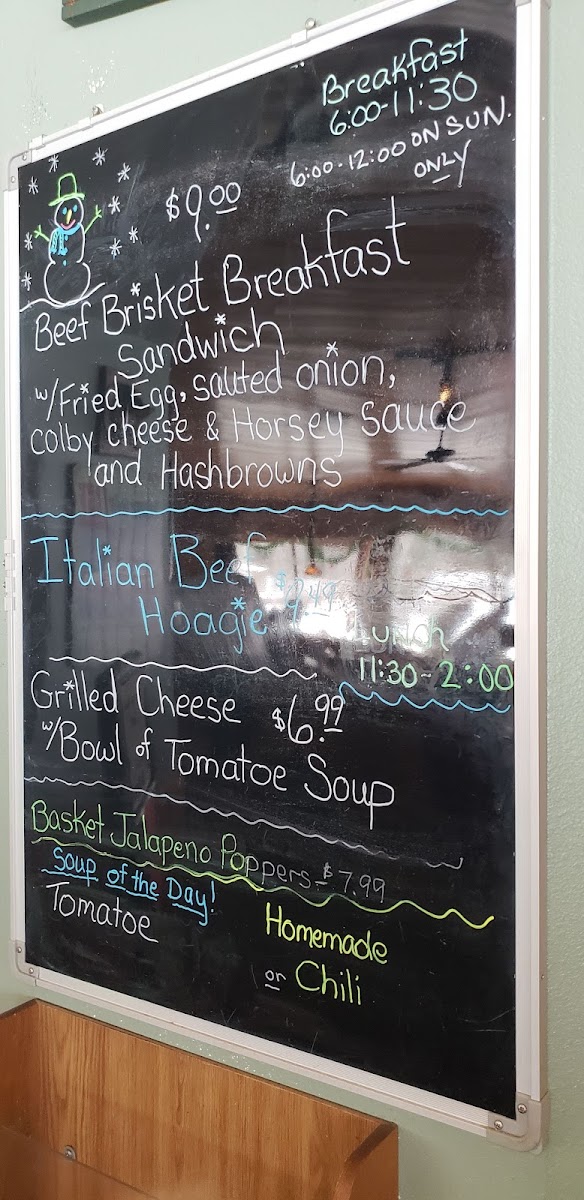 Breakfast
6:00-11:30
6:00-12:00 ON SUN.
ONLY
$9.00
Beef Brisket Breakfast
Sandwich
w/Fried Egg, sauted onion,
colby cheese & Horsey sauce
and Hashbrowns
Italian Beef
Hoagie
Lunch
11:30-2:00
Grilled Cheese $6.99
w/Bowl of Tomatoe Soup
Basket Jalapeno Poppers-$7.99
Soup of the Day!
Tomatoe
Homemade
or Chili